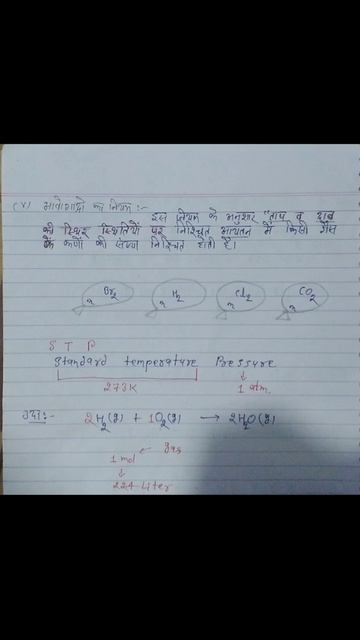 (V) आवोगाद्रो का नियम :-
इस नियम के अनुसार "ताप व दाब
की स्थिर स्थितियों पर निश्चित आयतन में किसी गैस
के कणों की संख्या निश्चित होती है।
Br₂ H₂ Cl₂ CO₂
n n n n
S T P
Standard temperature Pressure
273K 1 atm.
उदा:- 2H₂(g) + 1O₂(g) → 2H₂O(g)
1 mol ← gas
↓
22.4 Liter